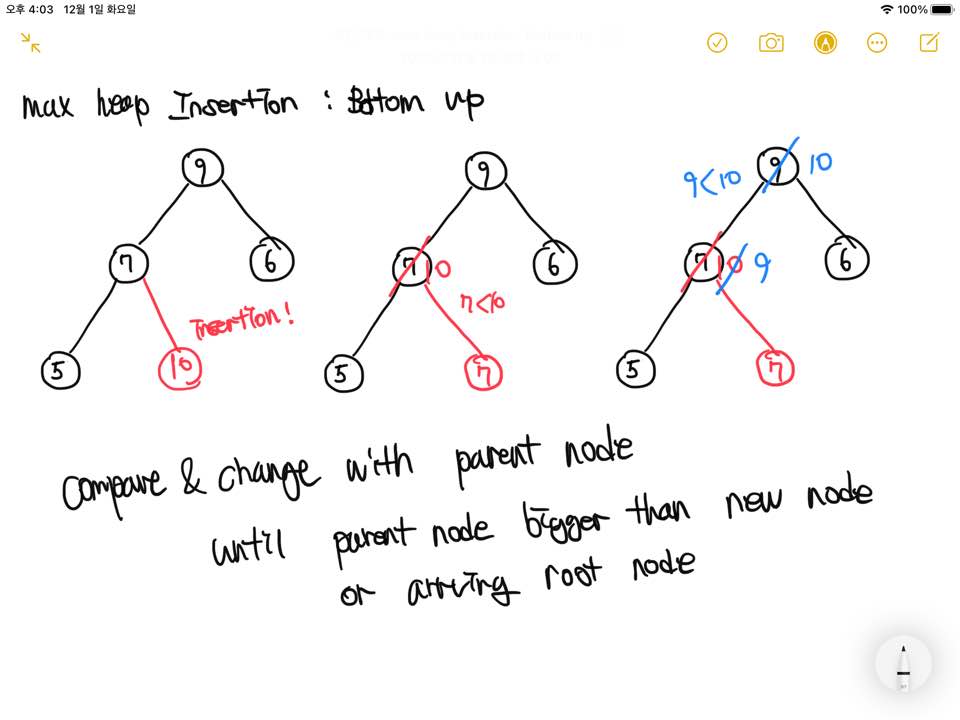 오후 4:03 12월 1일 화요일
100%
max heap Insertion : Bottom up
9
9
9<10
9
10
7
6
7
10
6
7
10
9
6
Insertion!
7<10
5
10
5
7
5
7
compare & change with parent node
until parent node bigger than new node
or arriving root node